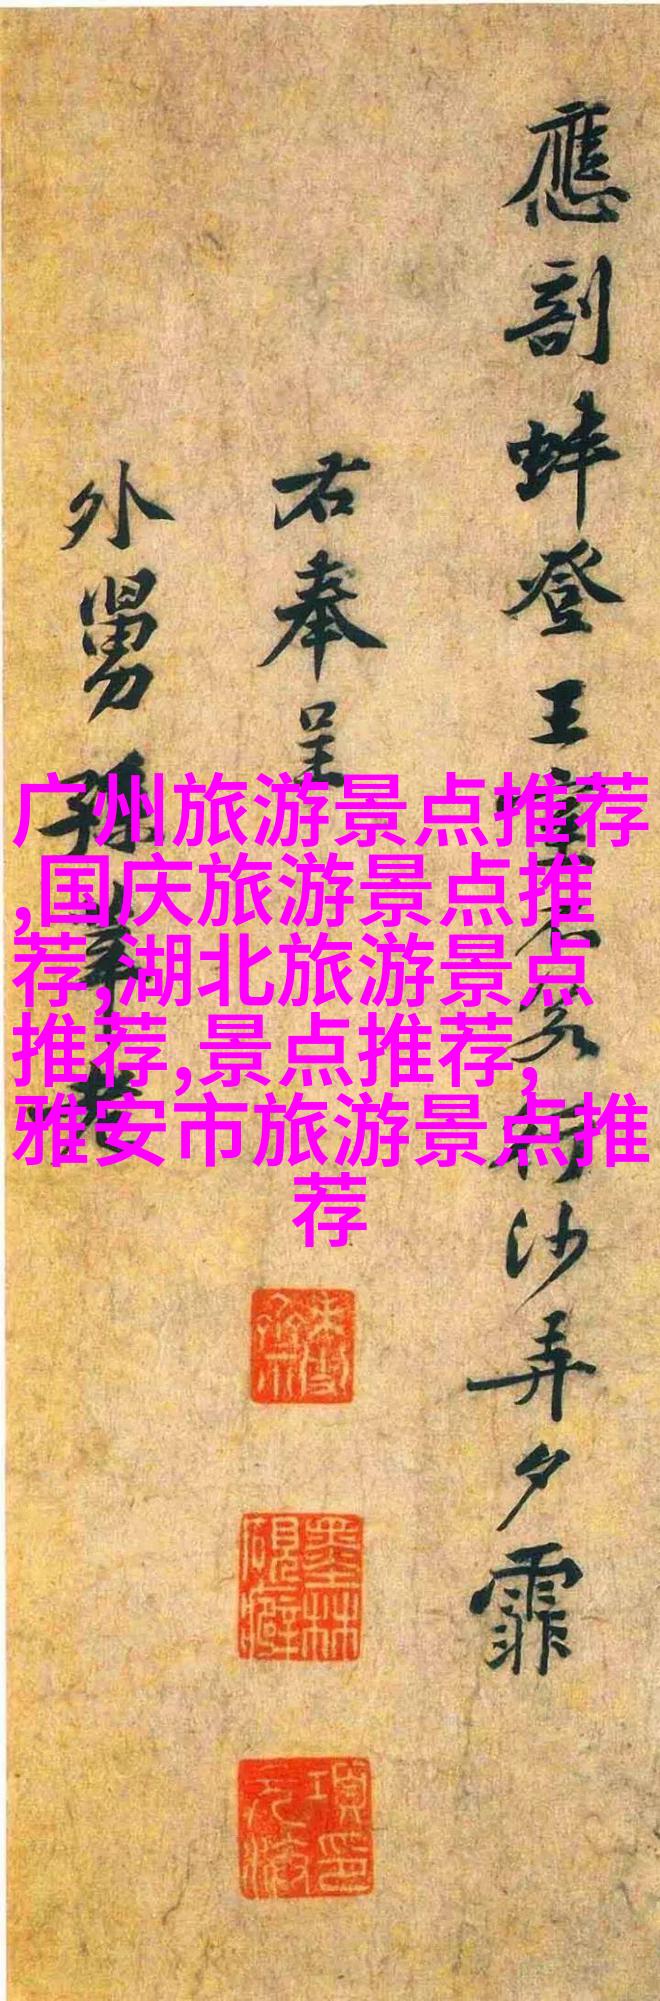 應剖蚌登王行沙弄夕霏
右奉呈
外舅孫莘老
广州旅游景点推荐
,国庆旅游景点推
荐,湖北旅游景点
推荐,景点推荐,
雅安市旅游景点推
荐
墨林硯癖